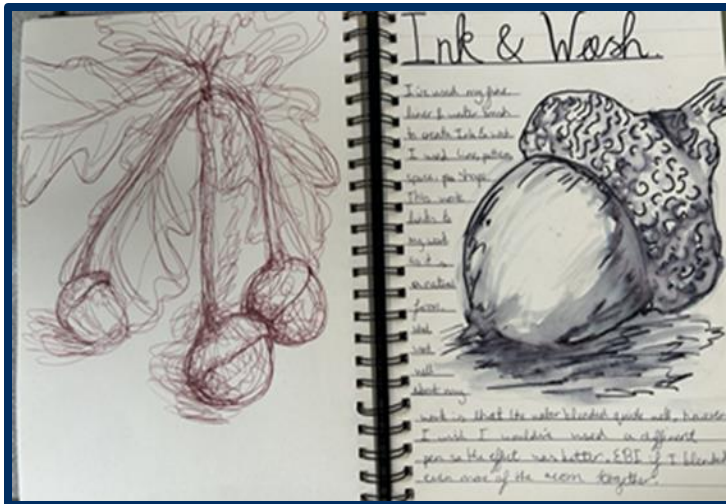 Ink & Wash.
I've used my fine
liner & water brush
to create Ink & wash
I used line, pattern
space, shape.
This work
links to
my work
as it is
a natural
form.
What
went
well
about my
work is that the water blended quite well, however
I wish I would've used a different
pen so the effect was better. EBI if I blended
even more of the acorn together.